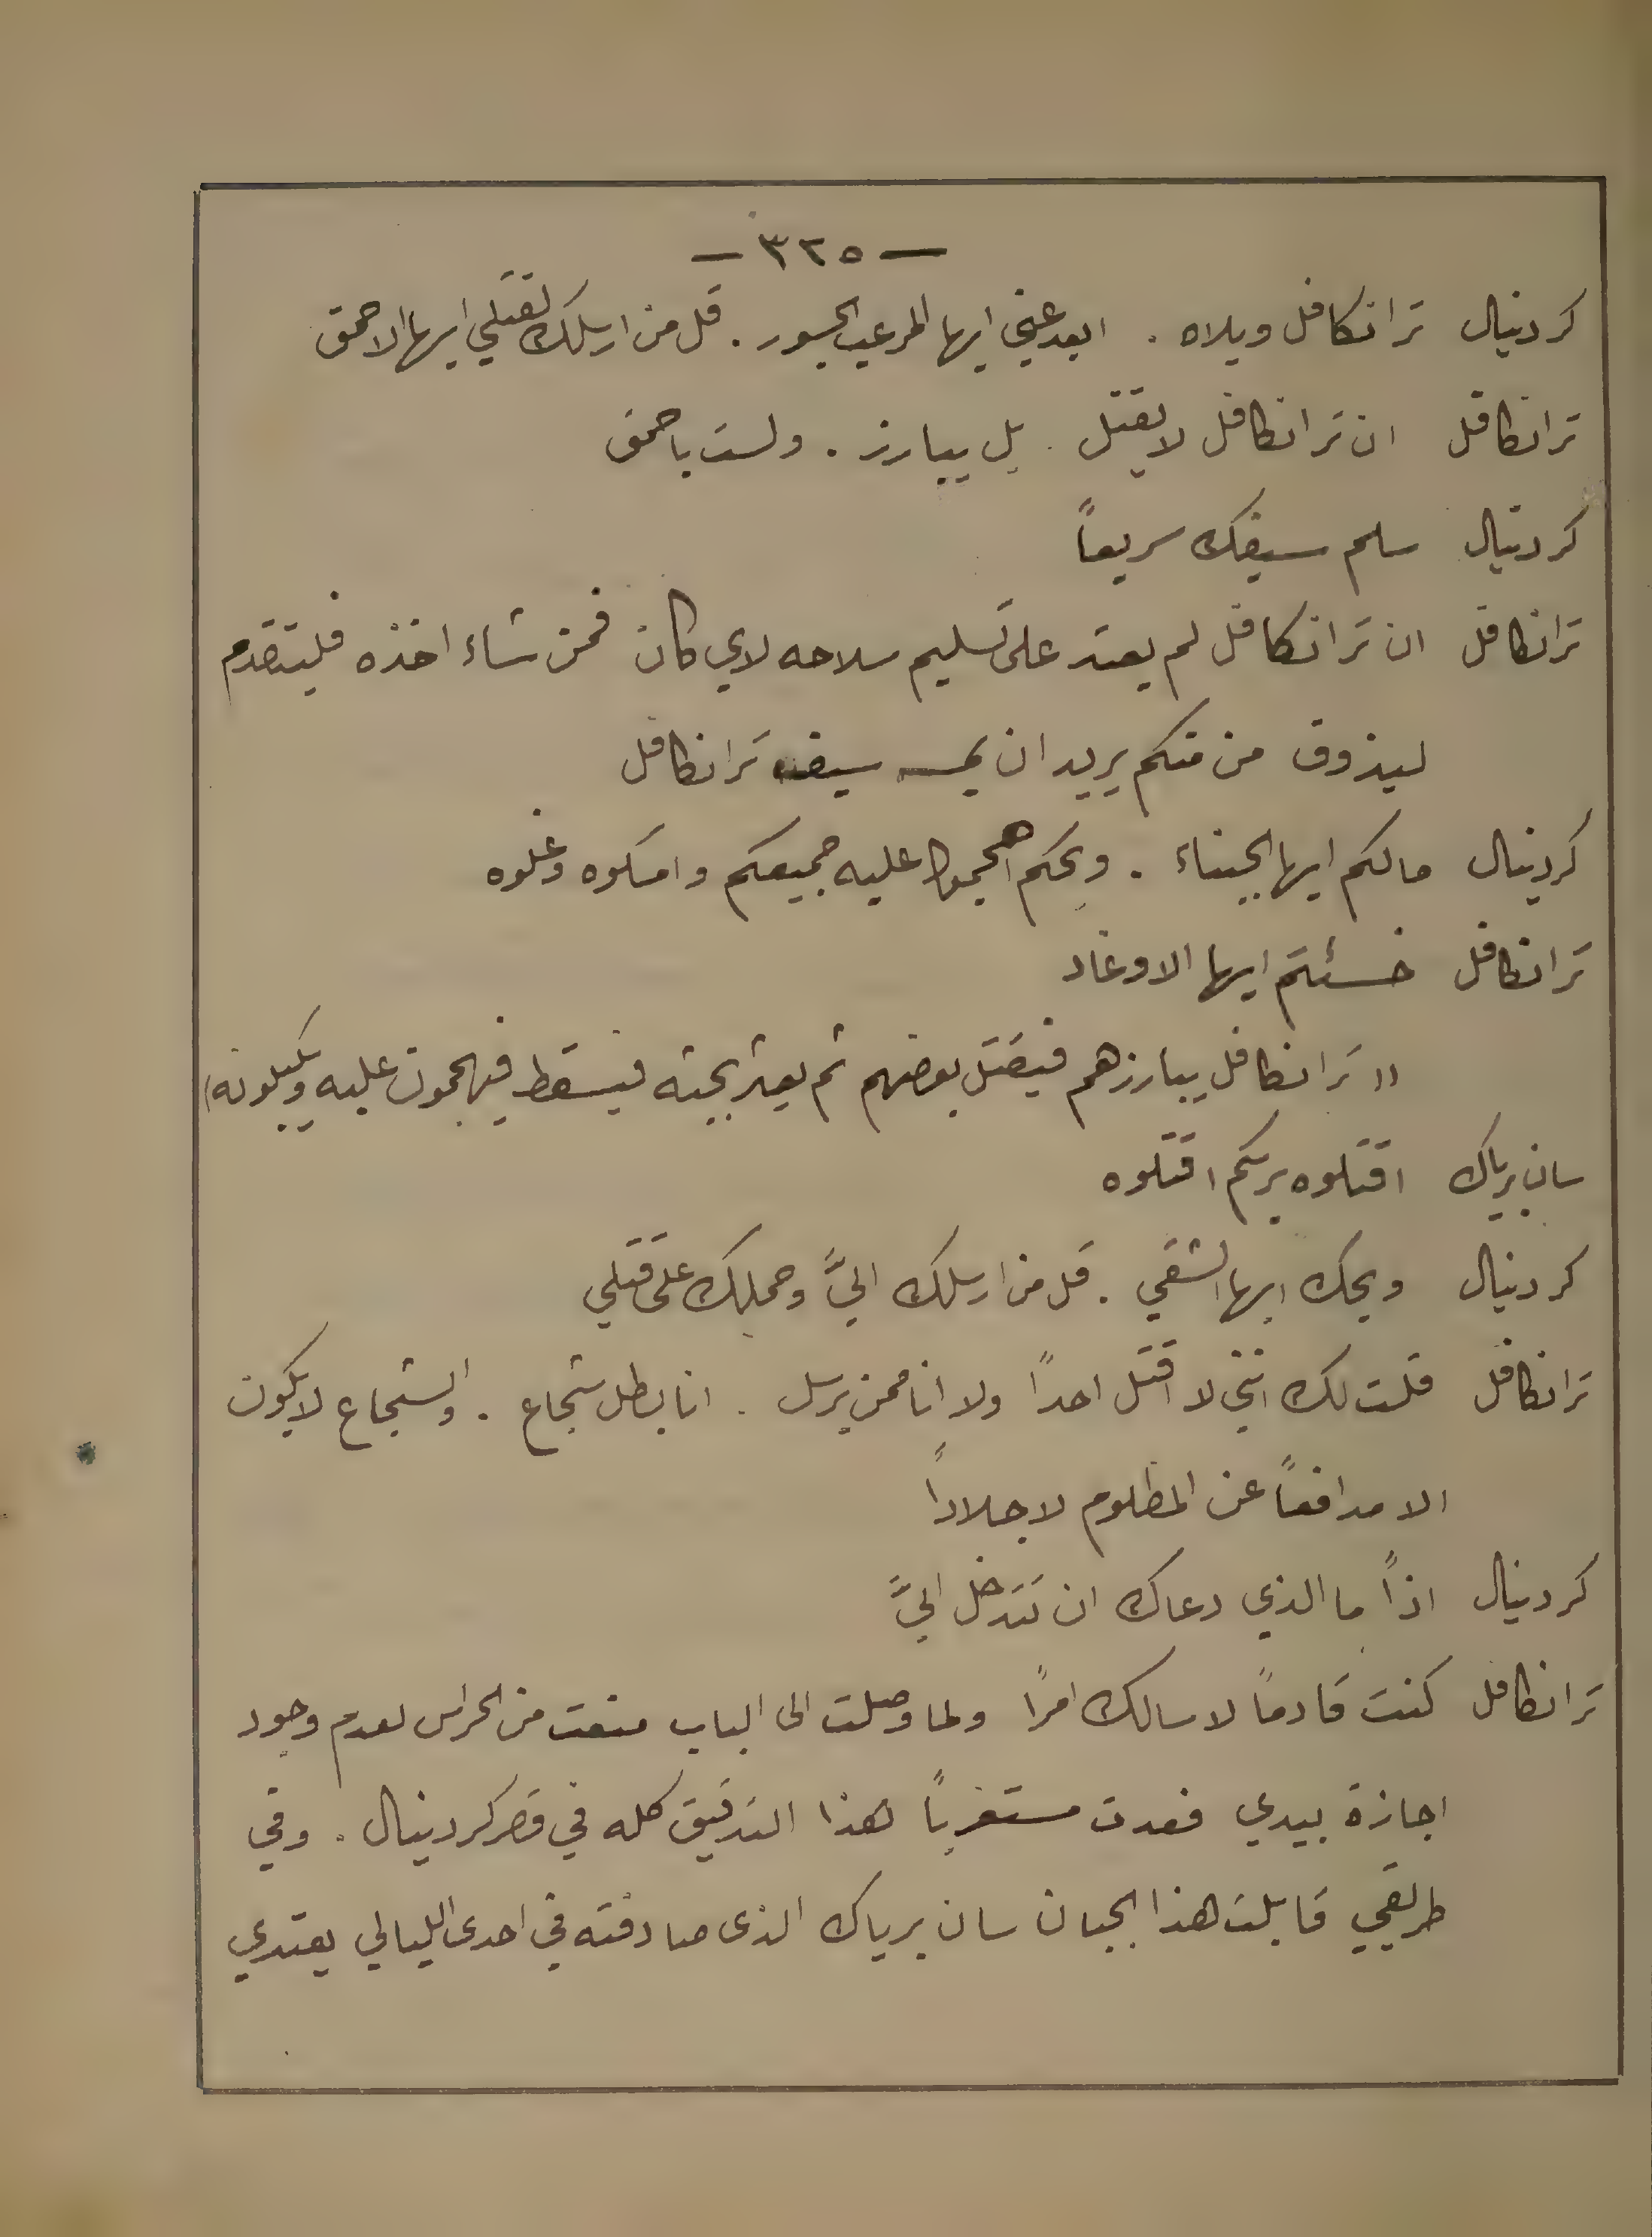 — ٣٢٥ —
كردينال ترانكافل ويلاه . ابعد عني ايها المرعب الجسور . قل من ارسلك لقتلي ايها الاحمق
ترانكافل ان ترانكافل لا يقتل . بل يبارز . ولست باحمق
كردينال سلم سيفك سريعاً
ترانكافل ان ترانكافل لم يعتد على تسليم سلاحه لاي كان فمن شاء اخذه فليتقدم
ليذوق من منكم يريد ان يمسه سيف ترانكافل
كردينال مالكم ايها الجبناء . ويحكم اهجموا عليه جميعكم وامسكوه وغلوه
ترانكافل خسئتم ايها الاوغاد
(( ترانكافل يبارزهم فيقتل بعضهم ثم يعثر بجثه فيسقط فيهجمون عليه ويكبلونه)
سان برياك اقتلوه بربكم اقتلوه
كردينال ويحك ايها الشقي . قل من ارسلك اليَّ وحملك على قتلي
ترانكافل قلت لك انني لا اقتل احداً ولا انا ممن يرسل . انا بطل شجاع . والشجاع لا يكون
الا مدافعاً عن المظلوم لا جلاداً
كردينال اذاً ما الذي دعاك ان تدخل اليَّ
ترانكافل كنت قادماً لاسالك امراً ولما وصلت الى الباب منعت من الحراس لعدم وجود
اجازة بيدي فعدت مستغرباً هذا التدقيق كله في قصر كردينال . وفي
طريقي قابلت هذا الجبان سان برياك الذى صادفته في احدى الليالي يعتدي